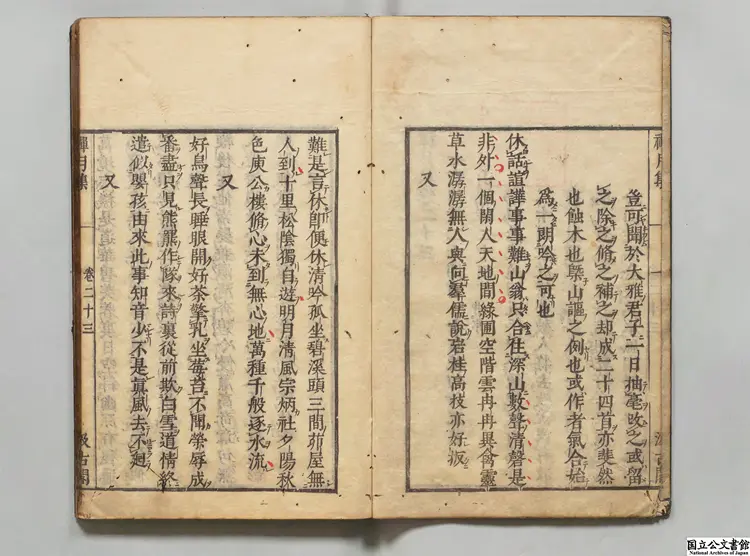 豈可聞於大雅君子一日抽毫改之或留
之除之脩之補之却成二十四首亦斐然
也蝕木也槩山謳之例也或作者氣合始
為一朗吟之可也
休話諠譁事事難山翁只合住深山數聲清磬是
非外一個閒人天地間綠圃空階雲冉冉異禽靈
草水潺潺無人與向羣儒說岩桂高枝亦好扳
又
難是言休即便休清吟孤坐碧溪頭三間茆屋無
人到十里松陰獨自遊明月清風宗炳社夕陽秋
色庾公樓脩心未到無心地萬種千般逐水流
又
好鳥聲長睡眼開好茶擎乳坐莓苔不聞榮辱成
番盡只見熊羆作隊來詩裏從前欺白雪道情終
遣似嬰孩由來此事知音少不是眞風去不迴
又
禪月集
卷二十三
汲古閣
国立公文書館
National Archives of Japan